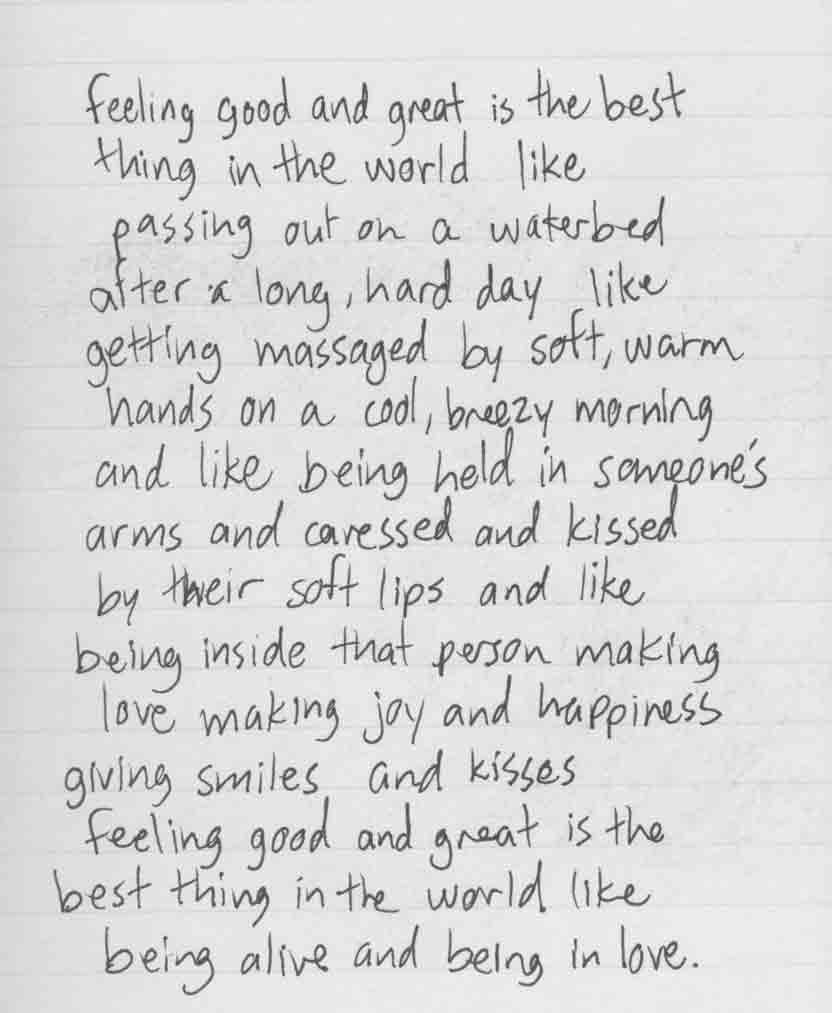 feeling good and great is the best
thing in the world like
passing out on a waterbed
after a long, hard day like
getting massaged by soft, warm
hands on a cool, breezy morning
and like being held in someone's
arms and caressed and kissed
by their soft lips and like
being inside that person making
love making joy and happiness
giving smiles and kisses
feeling good and great is the
best thing in the world like
being alive and being in love.